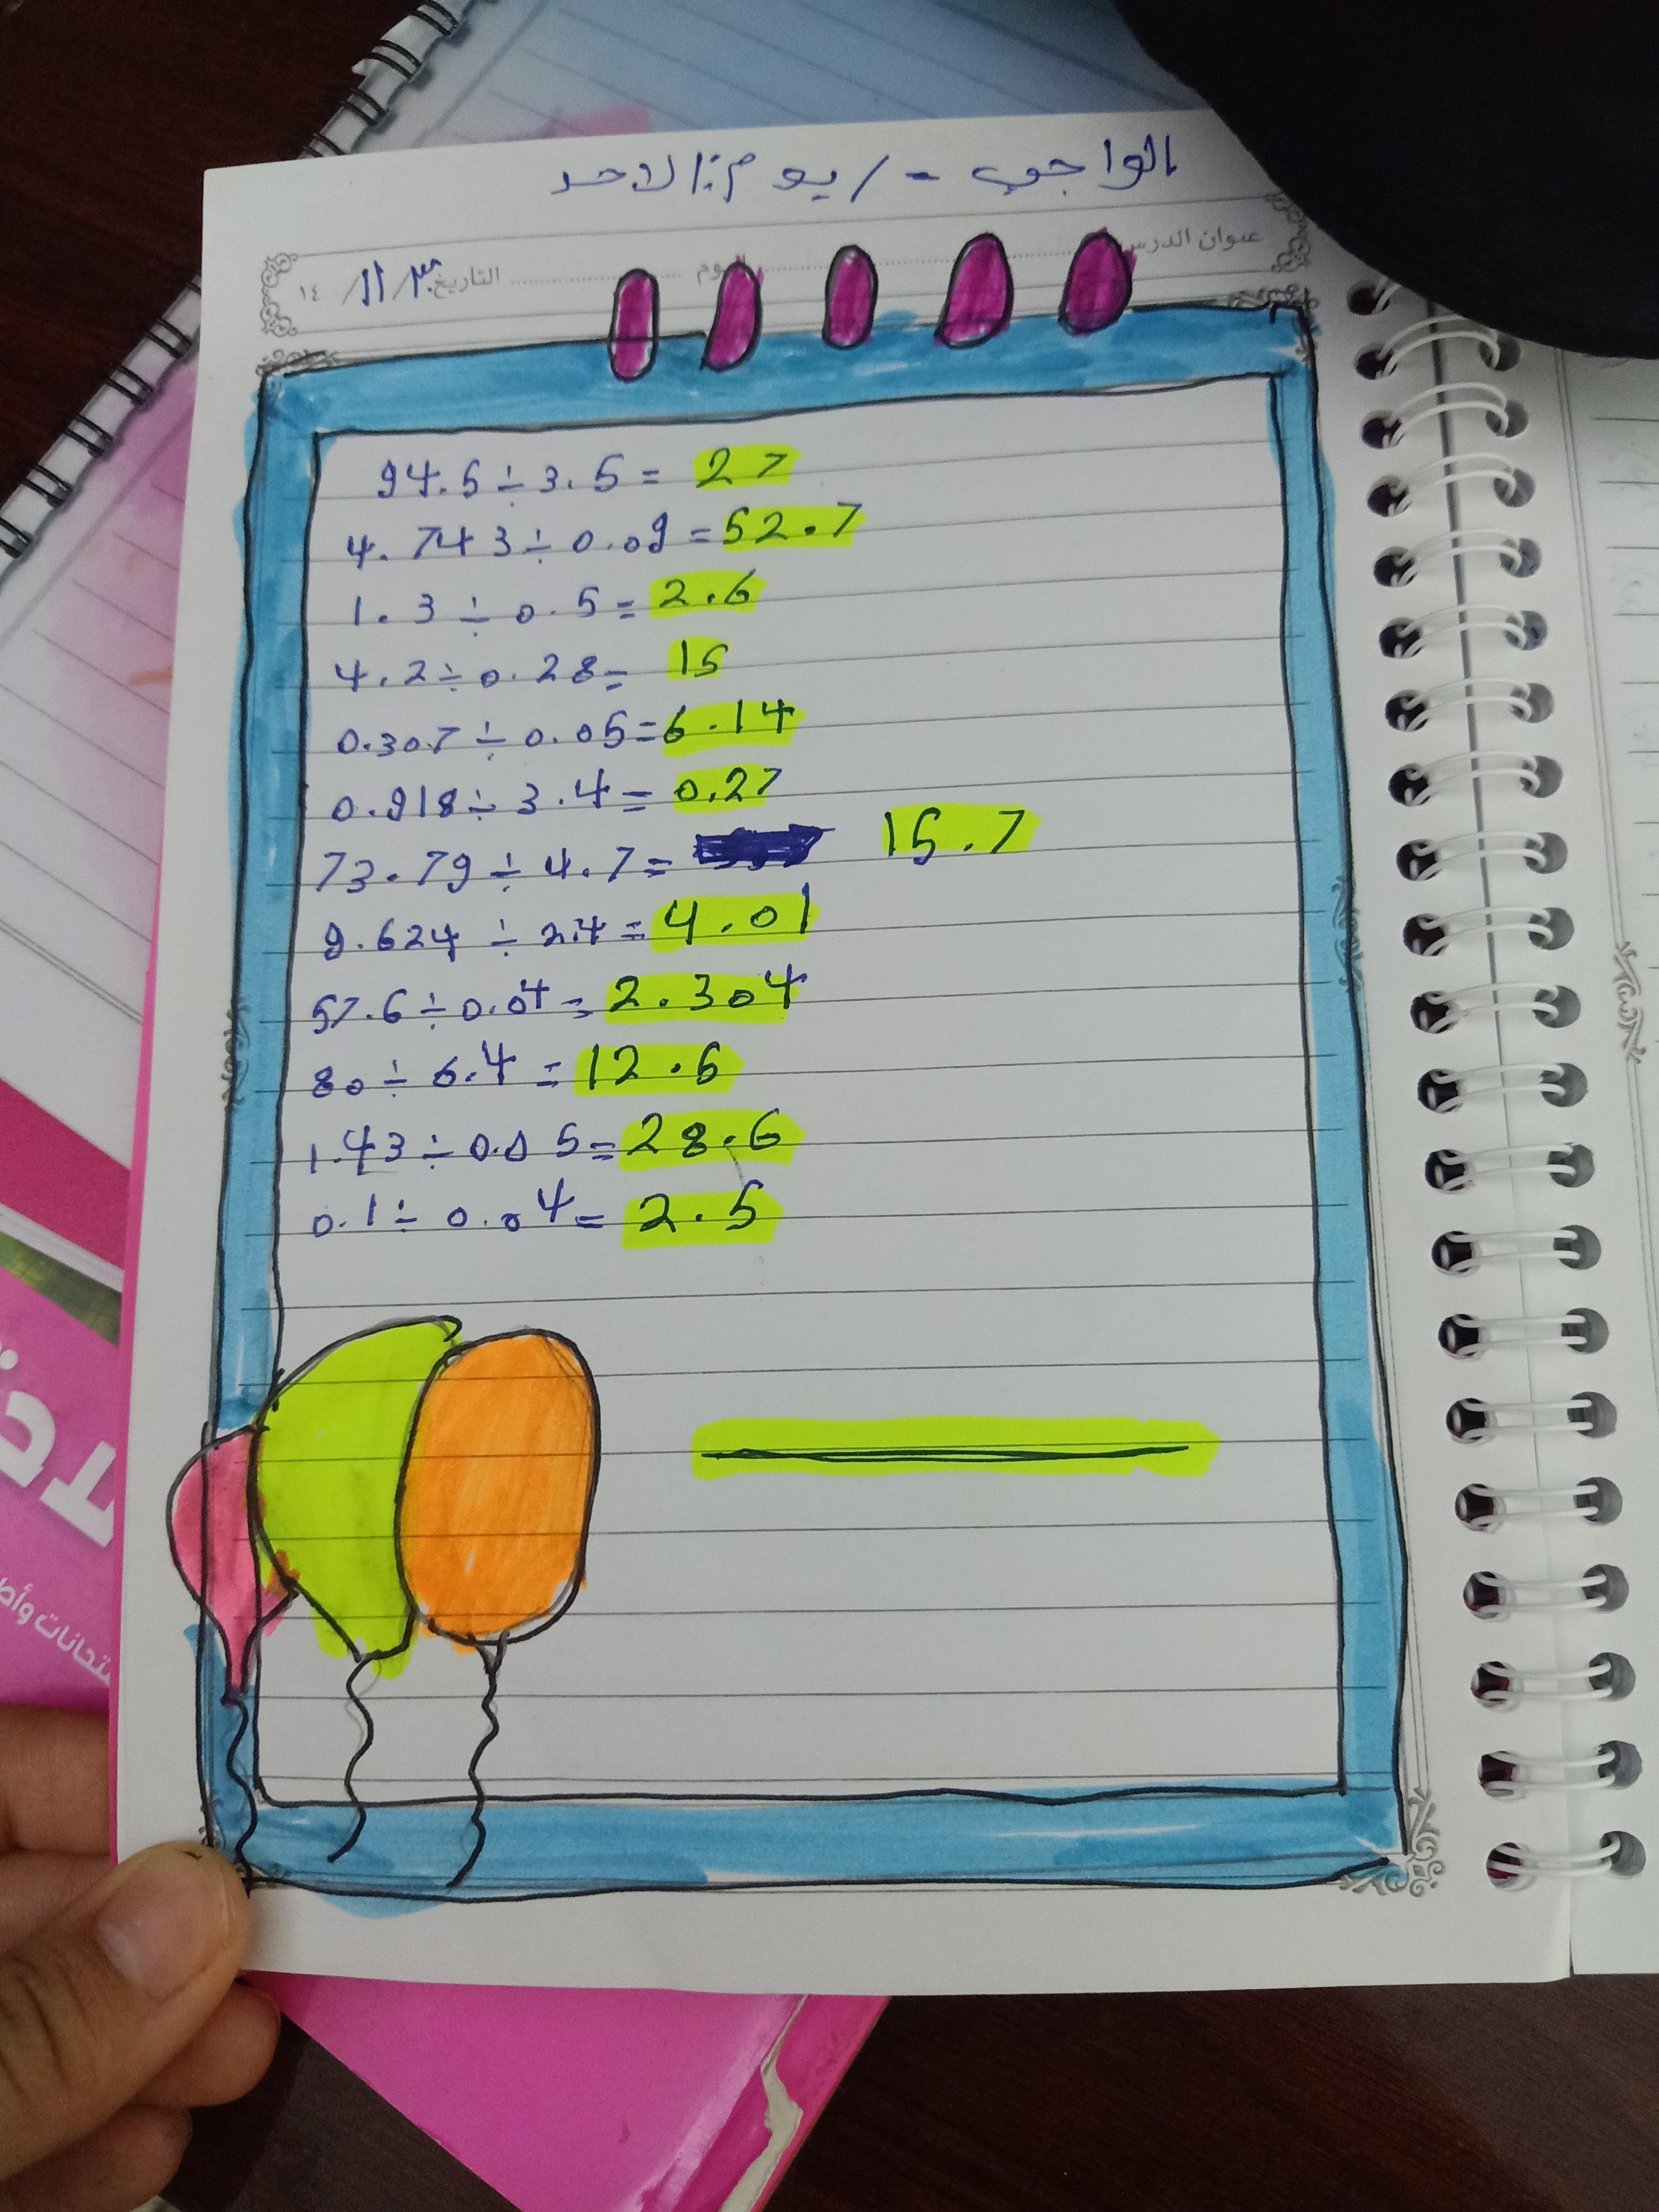 الواجب - / يوم: الاحد
عنوان الدرس
اليوم
التاريخ ٣٠ / ١١ / ١٤
94.5 ÷ 3.5 = 27
4.743 ÷ 0.09 = 52.7
1.3 ÷ 0.5 = 2.6
4.2 ÷ 0.28 = 15
0.307 ÷ 0.05 = 6.14
0.918 ÷ 3.4 = 0.27
73.79 ÷ 4.7 = 15.7
9.624 ÷ 2.4 = 4.01
57.6 ÷ 0.04 = 2.304
80 ÷ 6.4 = 12.5
1.43 ÷ 0.05 = 28.6
0.1 ÷ 0.04 = 2.5